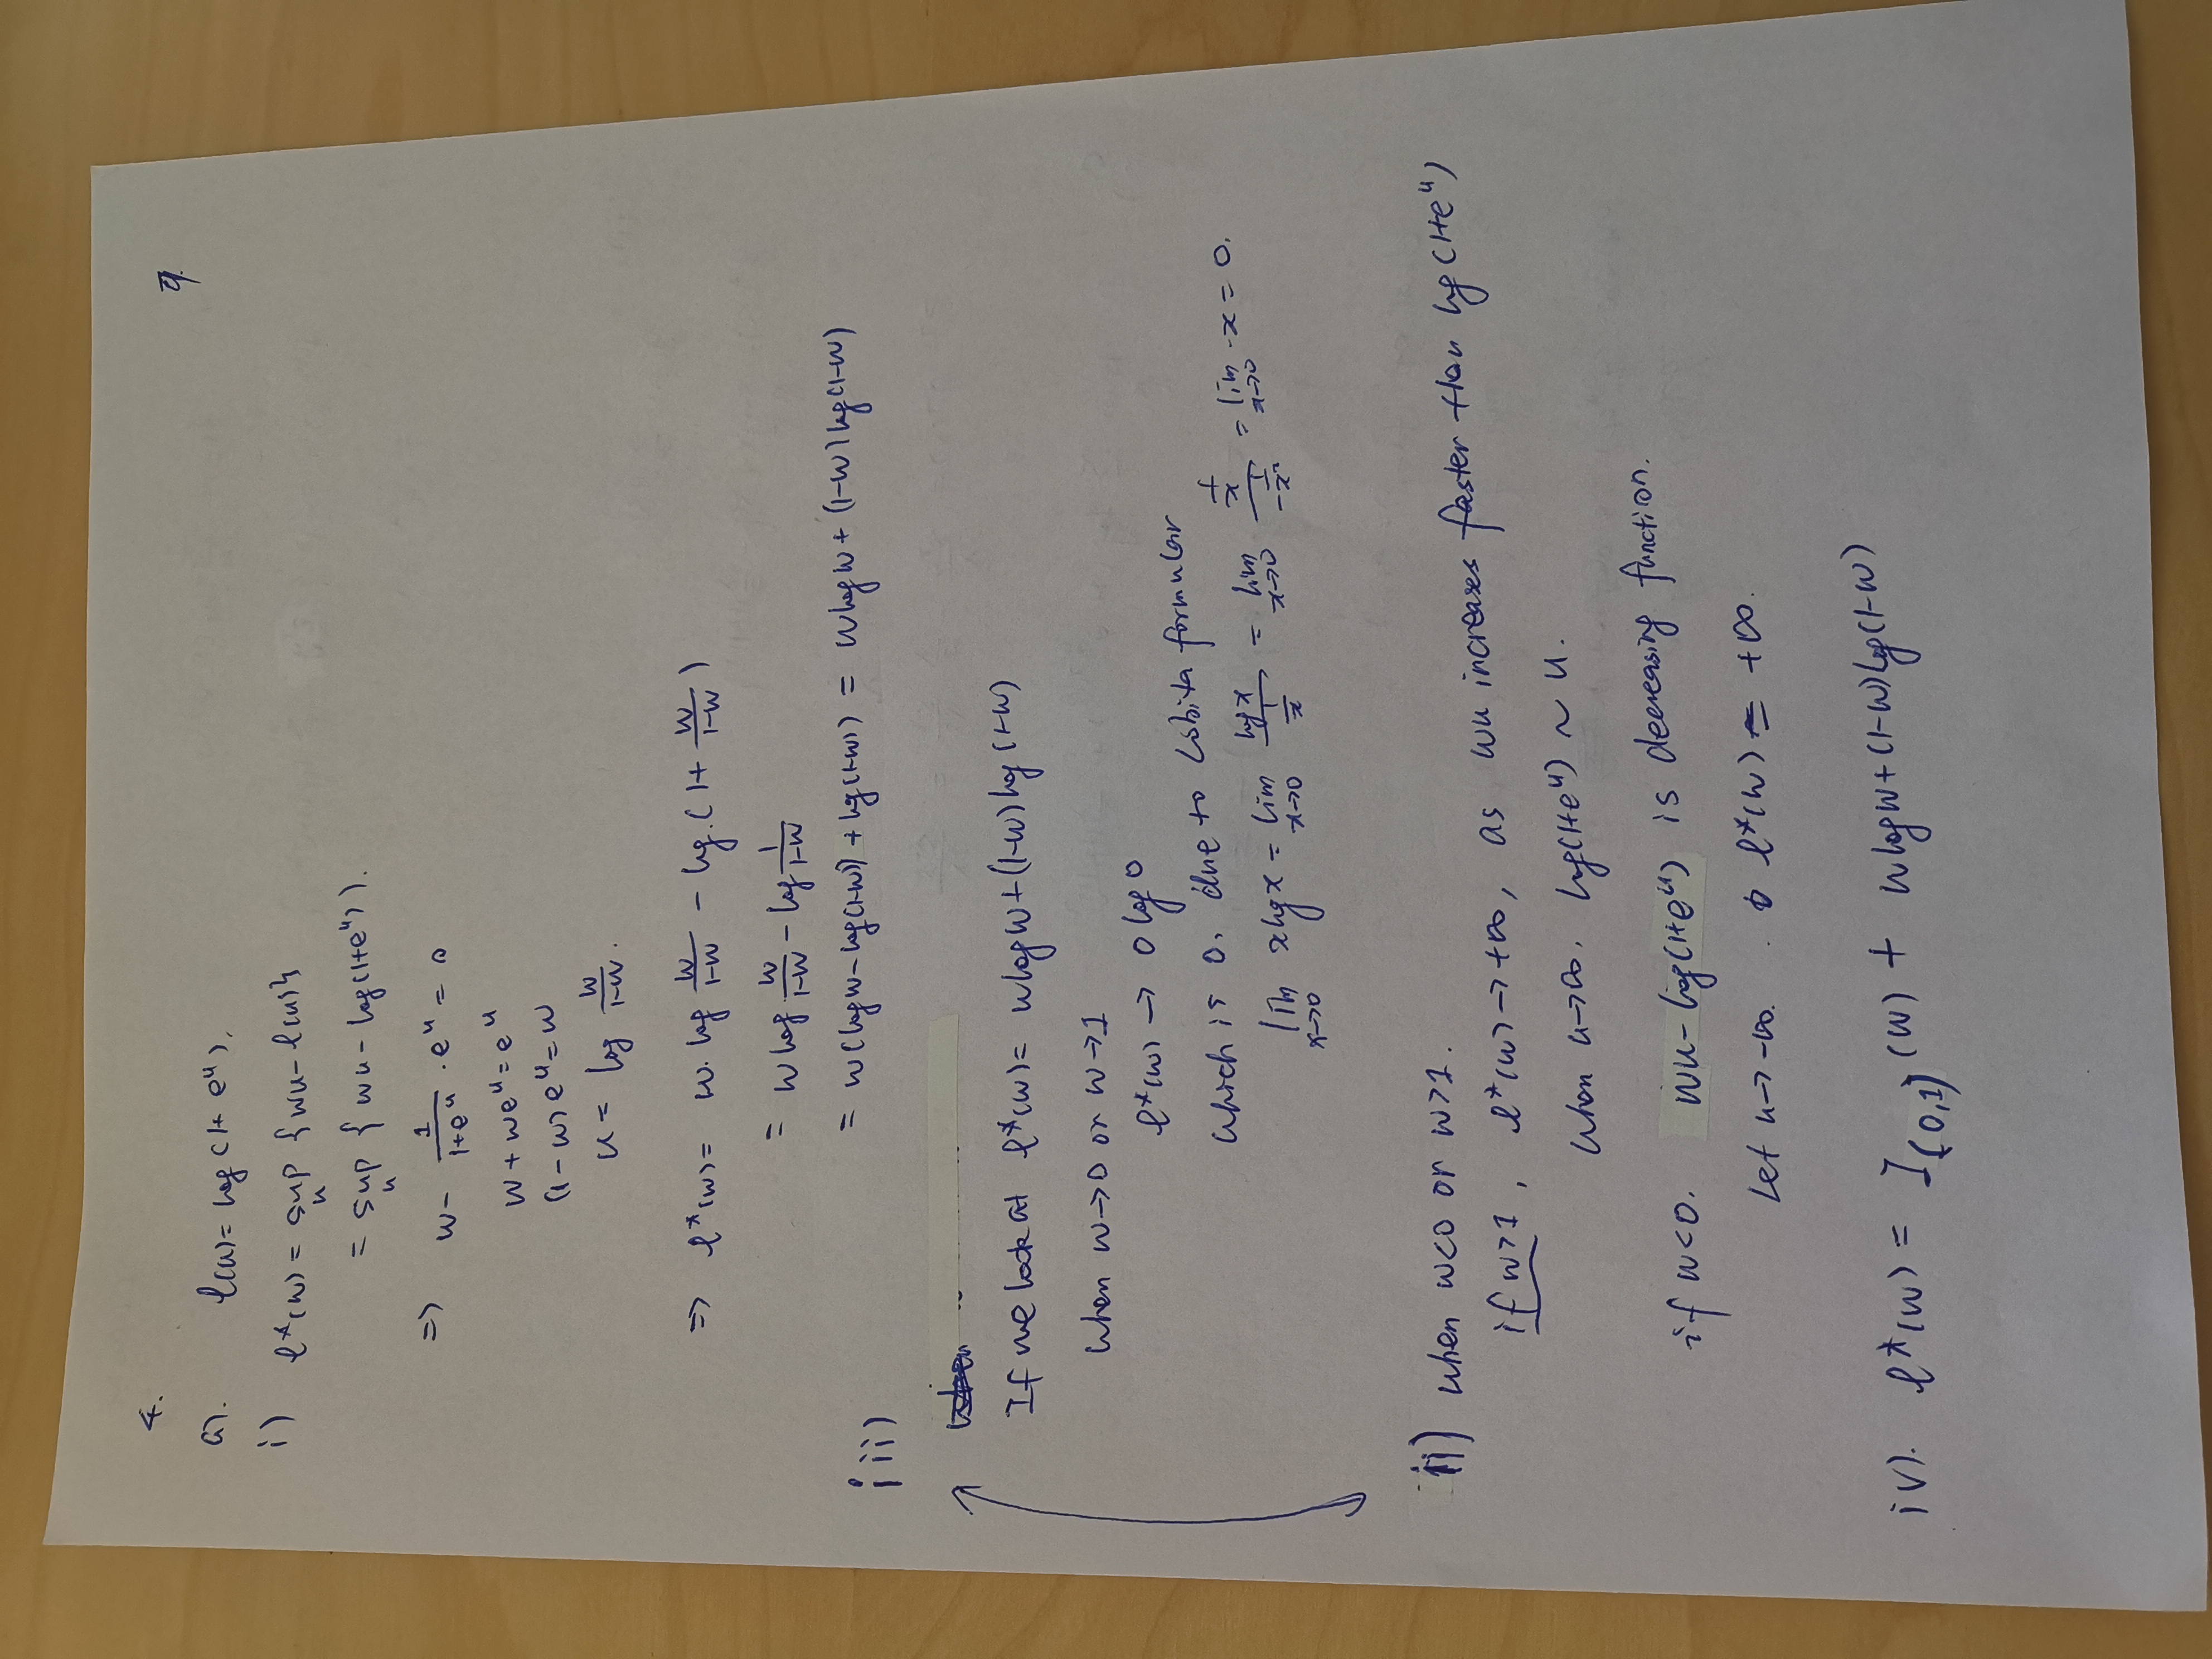 9.
4.
a). l(u) = log(1+e^u).
i) l*(w) = sup_u {wu - l(u)}
= sup_u { wu - log(1+e^u) }.
=> w - 1/(1+e^u) · e^u = 0
w + we^u = e^u
(1-w)e^u = w
u = log w/(1-w).
=> l*(w) = w · log w/(1-w) - log(1 + w/(1-w))
= w log w/(1-w) - log 1/(1-w)
= w(log w - log(1-w)) + log(1-w) = w log w + (1-w) log(1-w)
iii)
If we look at l*(w) = w log w + (1-w) log(1-w)
when w→0 or w→1
l*(w) → 0 log 0
which is 0, due to Lobita formular
lim_{x→0} x log x = lim_{x→0} log x / (1/x) = lim_{x→0} (1/x) / (-1/x²) = lim_{x→0} -x = 0.
ii) when w<0 or w>1.
if w>1, l*(w) → +∞, as wu increases faster than log(1+e^u)
when u→∞, log(1+e^u) ~ u.
if w<0. wu - log(1+e^u) is decreasing function.
Let u→-∞. l*(w) = +∞.
iv). l*(w) = I_(0,1)(w) + w log w + (1-w) log(1-w)